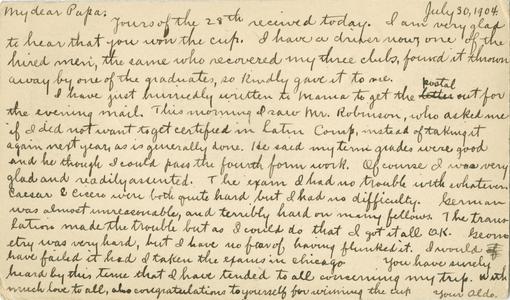 My dear Papa:
July 30, 1904
Yours of the 28th received today. I am very glad
to hear that you won the cup. I have a driver now, one of the
hired men, the same who recovered my three clubs, found it thrown
away by one of the graduates, so kindly gave it to me.
I have just hurriedly written to Mama to get the postal out for
the evening mail. This morning I saw Mr. Robinson, who asked me
if I did not want to get certified in Latin Comp, instead of taking it
again next year, as is generally done. He said my term grades were good
and he though I could pass the fourth form work. Of course I was very
glad and readily assented. The exam I had no trouble with whatever.
Caesar & Cicero were both quite hard, but I had no difficulty. German
was almost unreasonable, and terribly hard on many fellows. The trans
lation made the trouble but as I could do that I got it all O.K. Geom
etry was very hard, but I have no fear of having flunked it. I would
have failed it had I taken the exams in Chicago You have surely
heard by this time that I have tended to all concerning my trip. With
much love to all, also congratulations to yourself for winning the cup
Your Aldo.